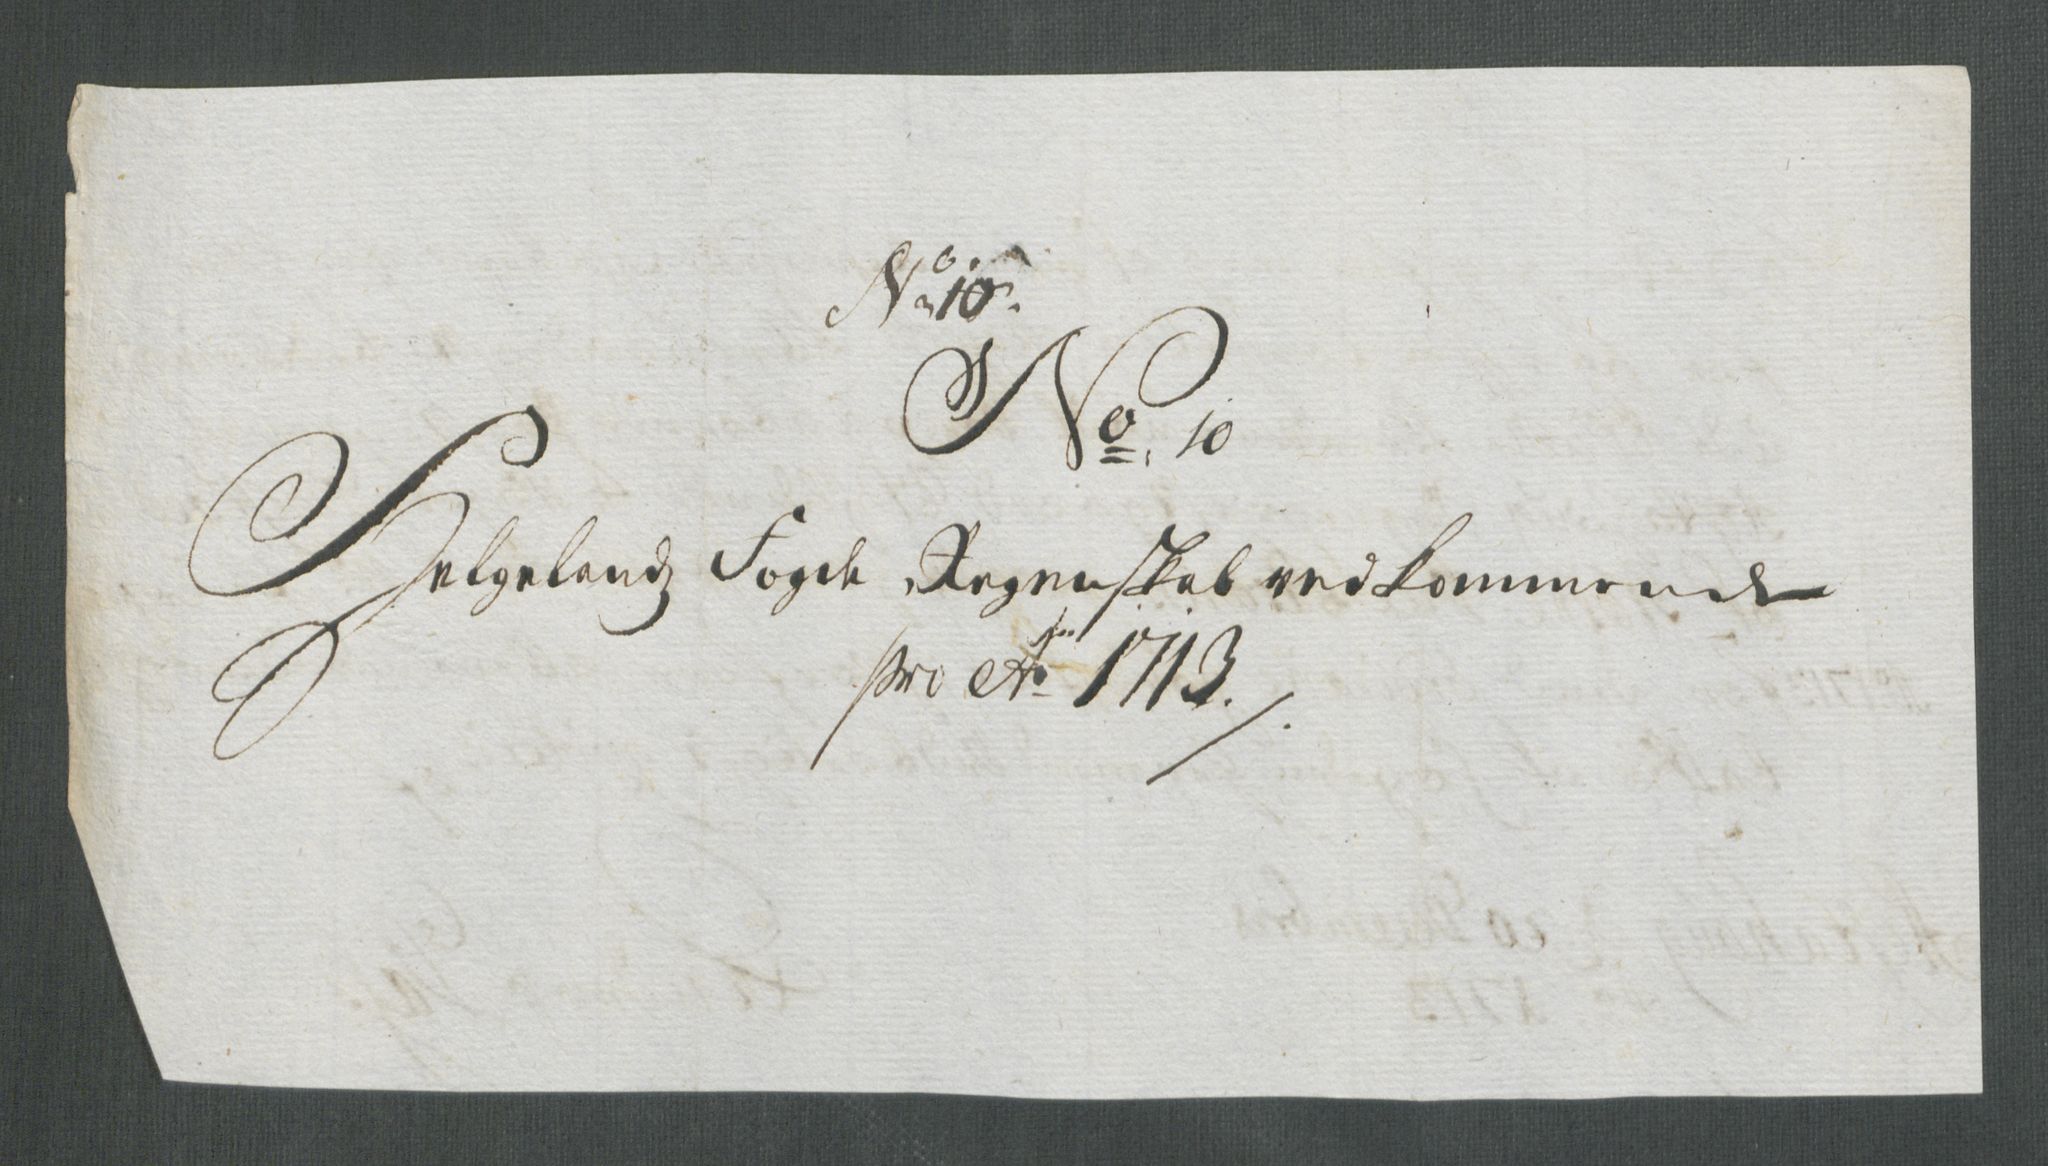 No 10.
No. 10
Helgelandz Fogde Regenskab vedkommende
pro Ao 1713.